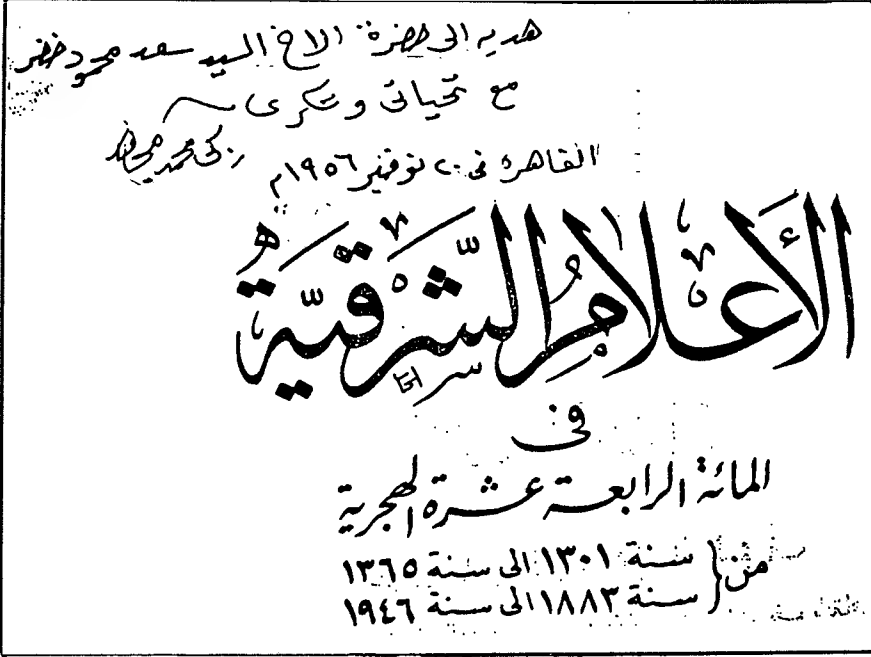 هديه الى حضرة الاخ السيد سعد محمود خضر
مع تحياتى وشكرى
زكى محمد مجاهد
القاهرة فى ٢٠ نوفمبر ١٩٥٦م
الأَعْلَامُ الشَّرْقِيَّة
فى
المائة الرابعة عشرة الهجرية
من { سنة ١٣٠١ الى سنة ١٣٦٥
سنة ١٨٨٣ الى سنة ١٩٤٦